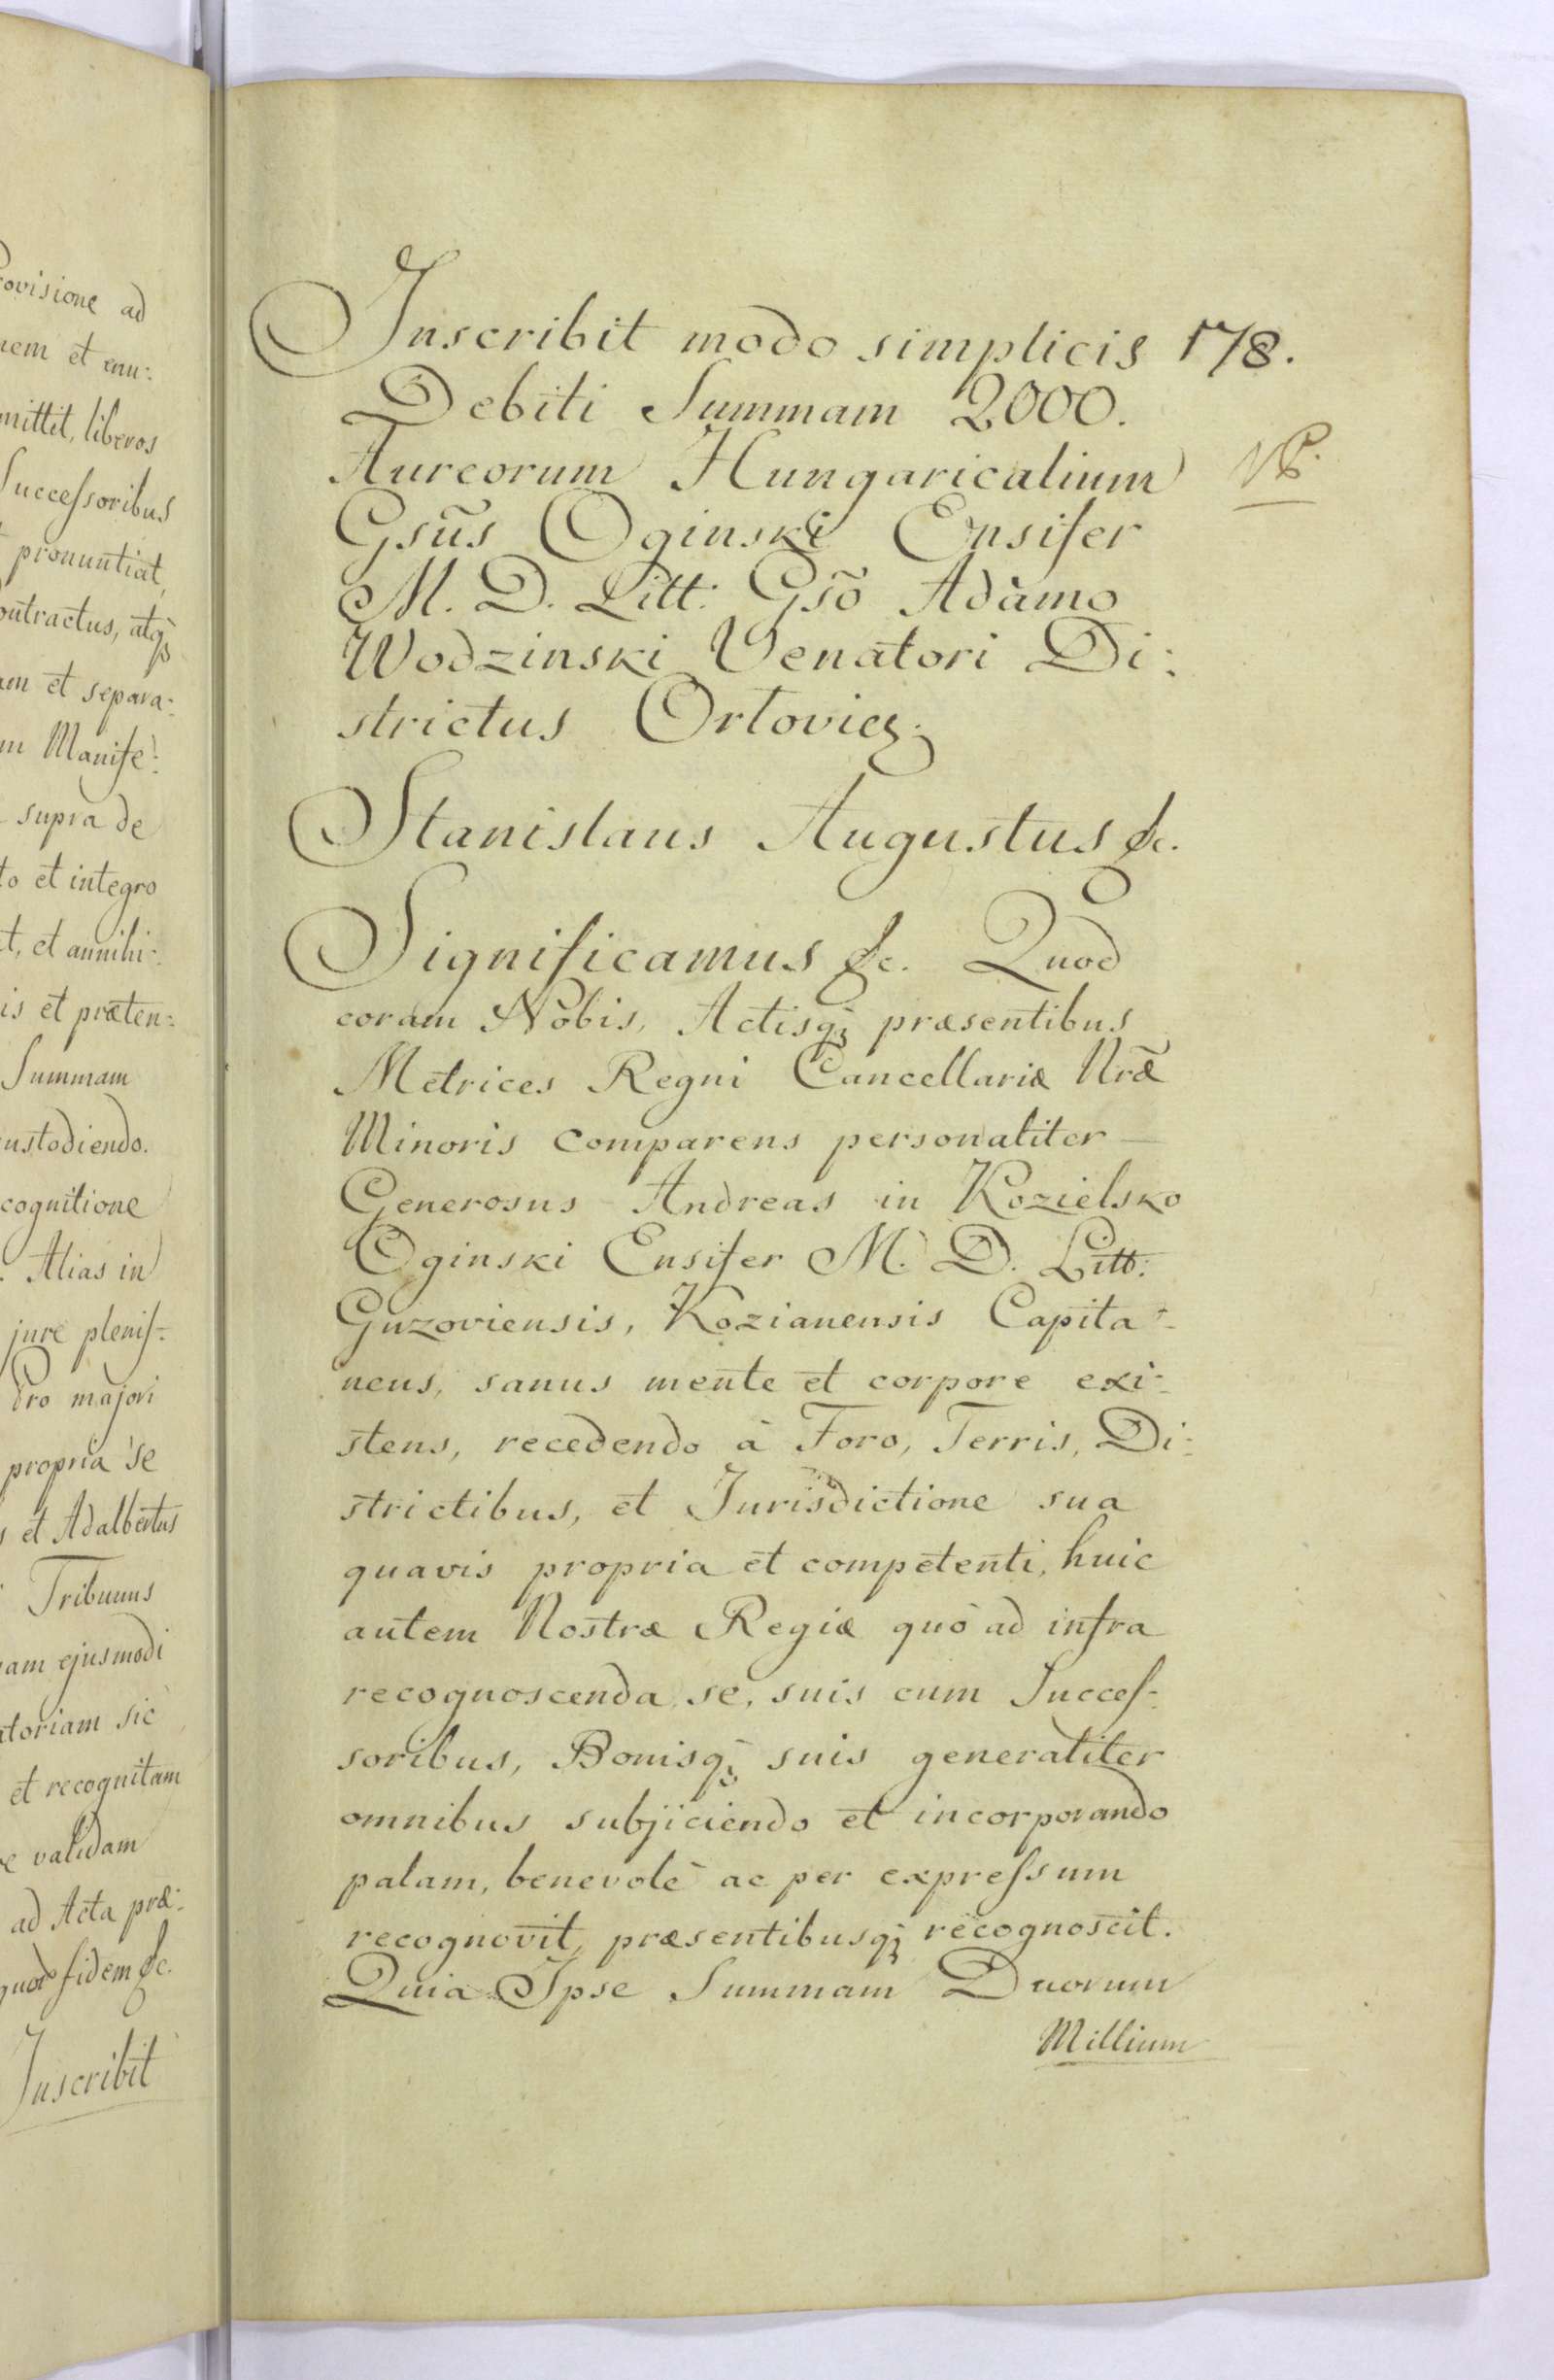 rovisione ad
nem et enu:
mittit, liberos
Successoribus
pronuntiat,
ontractus, atq;
am et separa:
m Manife:
supra de
to et integro
t, et annihi:
is et præten:
Summam
ustodiendo.
cognitione
Alias in
jure plenis:
dro majori
propria se
s et Adalbertus
Tribunus
am ejusmodi
atoriam sic
et recognitam
e validam
ad Acta præ:
quod fidem &c.
Inscribit
Inscribit modo simplicis 178.
Debiti Summam 2000.
Aureorum Hungaricalium
Gsũs Oginski Ensifer
M. D. Litt: Gsõ Adamo
Wodzinski Venatori Di:
strictus Orłovien:
Stanislaus Augustus &c.
Significamus &c. Quod
coram Nobis, Actisq; præsentibus
Metrices Regni Cancellariæ Nræ̃
Minoris comparens personaliter
Generosus Andreas in Kozielsko
Oginski Ensifer M. D. Litt:
Guzoviensis, Kozianensis Capita:
neus, sanus mente et corpore exi:
stens, recedendo à Foro, Terris, Di:
strictibus, et Jurisdictione sua
quavis propria et competenti, huic
autem Nostræ Regiæ quò ad infra
recognoscenda se, suis cum Succes:
soribus, Bonisq; suis generaliter
omnibus subjiciendo et incorporando
palam, benevolè ac per expressum
recognovit, præsentibusq; recognoscit.
Quia Ipse Summam Duorum
Millium